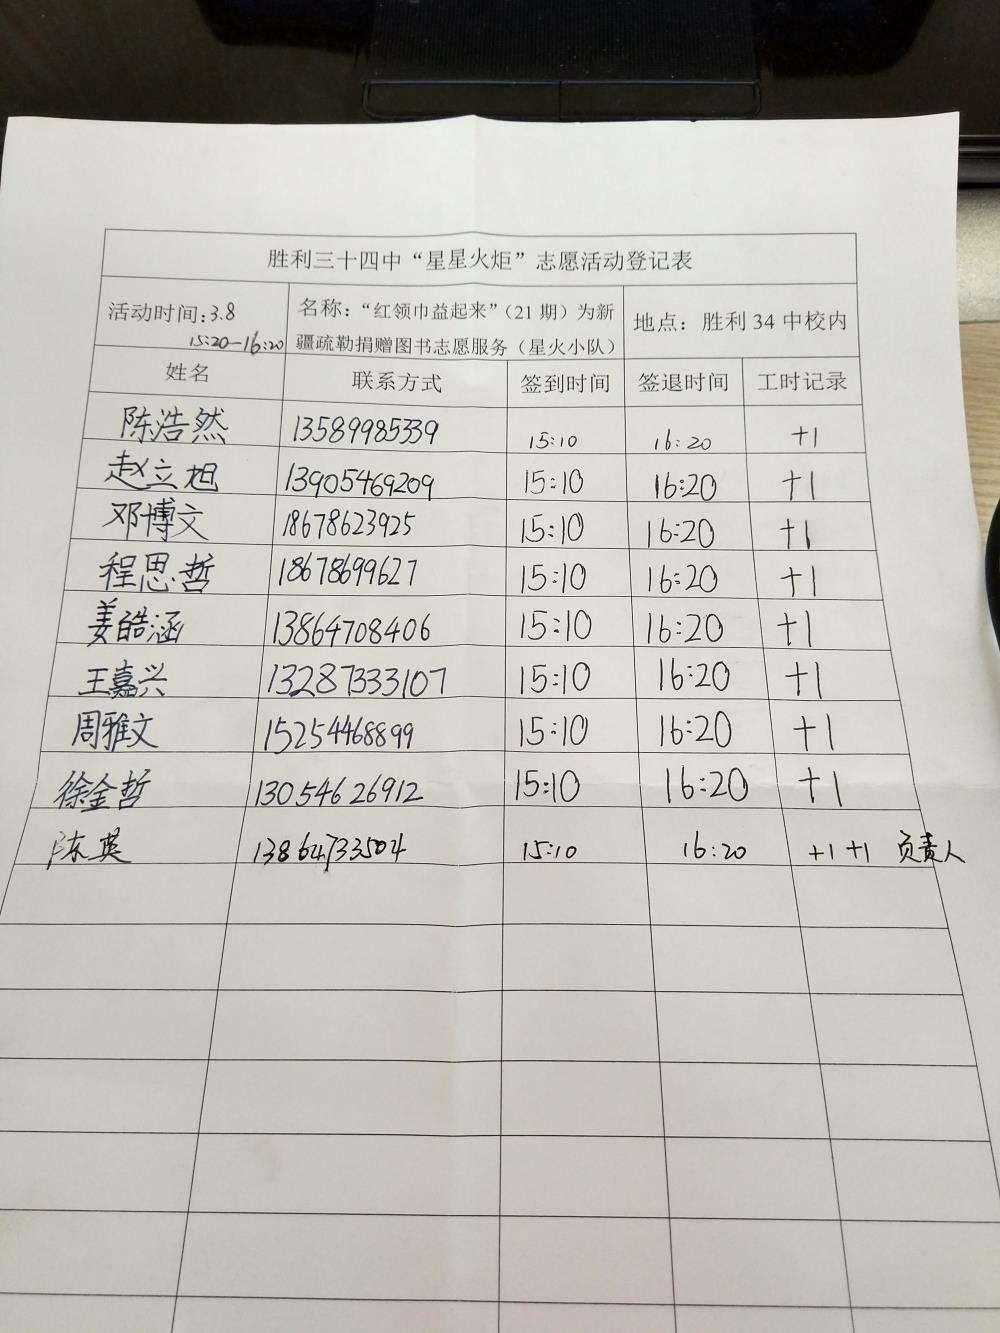 胜利三十四中“星星火炬”志愿活动登记表
活动时间:3.8
15:20-16:20
名称：“红领巾益起来”（21期）为新
疆疏勒捐赠图书志愿服务（星火小队）
地点：胜利34中校内
姓名 联系方式 签到时间 签退时间 工时记录
陈浩然 13589985339 15:10 16:20 +1
赵立旭 13905469209 15:10 16:20 +1
邓博文 18678623925 15:10 16:20 +1
程思哲 18678699627 15:10 16:20 +1
姜皓涵 13864708406 15:10 16:20 +1
王嘉兴 13287333107 15:10 16:20 +1
周雅文 15254468899 15:10 16:20 +1
徐金哲 13054626912 15:10 16:20 +1
陈英 13864733504 15:10 16:20 +1 +1 负责人